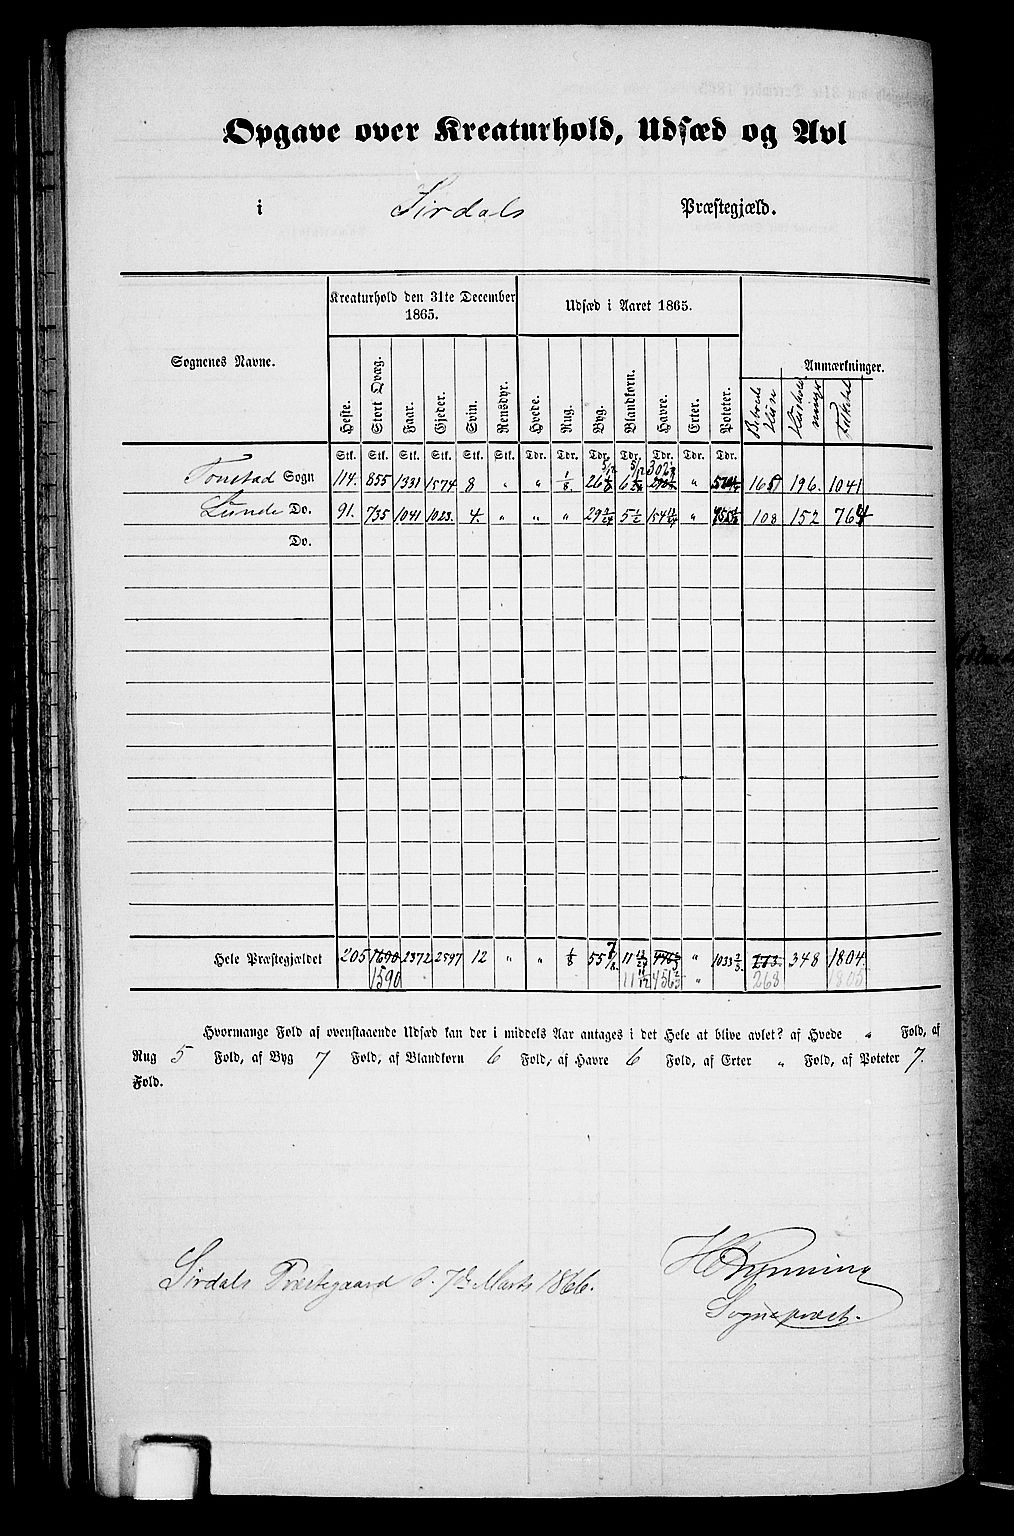 Opgave over Kreaturhold, Udsæd og Avl
i Sirdals Præstegjæld.
Sognenes Navne. Kreaturhold den 31te December 1865. Udsæd i Aaret 1865. Anmærkninger.
Heste. Stort Qvæg. Faar. Gjeder. Svin. Rensdyr. Hvede. Rug. Byg. Blandkorn. Havre. Erter. Poteter. Beboede Huse Hushold-ninger Folketal
Stk. Stk. Stk. Stk. Stk. Stk. Tdr. Tdr. Tdr. Tdr. Tdr. Tdr. Tdr.
Tonstad Sogn 114. 855 1331 1574 8 " " 1/8. 26 6 302 " 165 196. 1041
Lunde Do. 91. 735 1041 1023. 4. " " " 29 5 1/2 154 " 108 152 764
Do.
Hele Præstegjældet 205 1690 2372 2597 12 " " 1/8 55 7/8. 11 " 1033 2/3. 273. 348 1804.
1590 11 11/12 456 2/3 " 268 1805
Hvormange Fold af ovenstaaende Udsæd kan der i middels Aar antages i det Hele at blive avlet? af Hvede " Fold, af
Rug 5 Fold, af Byg 7 Fold, af Blandkorn 6 Fold, af Havre 6 Fold, af Erter " Fold, af Poteter 7.
Fold.
Sirdals Præstegaard d. 7de Marts 1866.
Sognepræst.